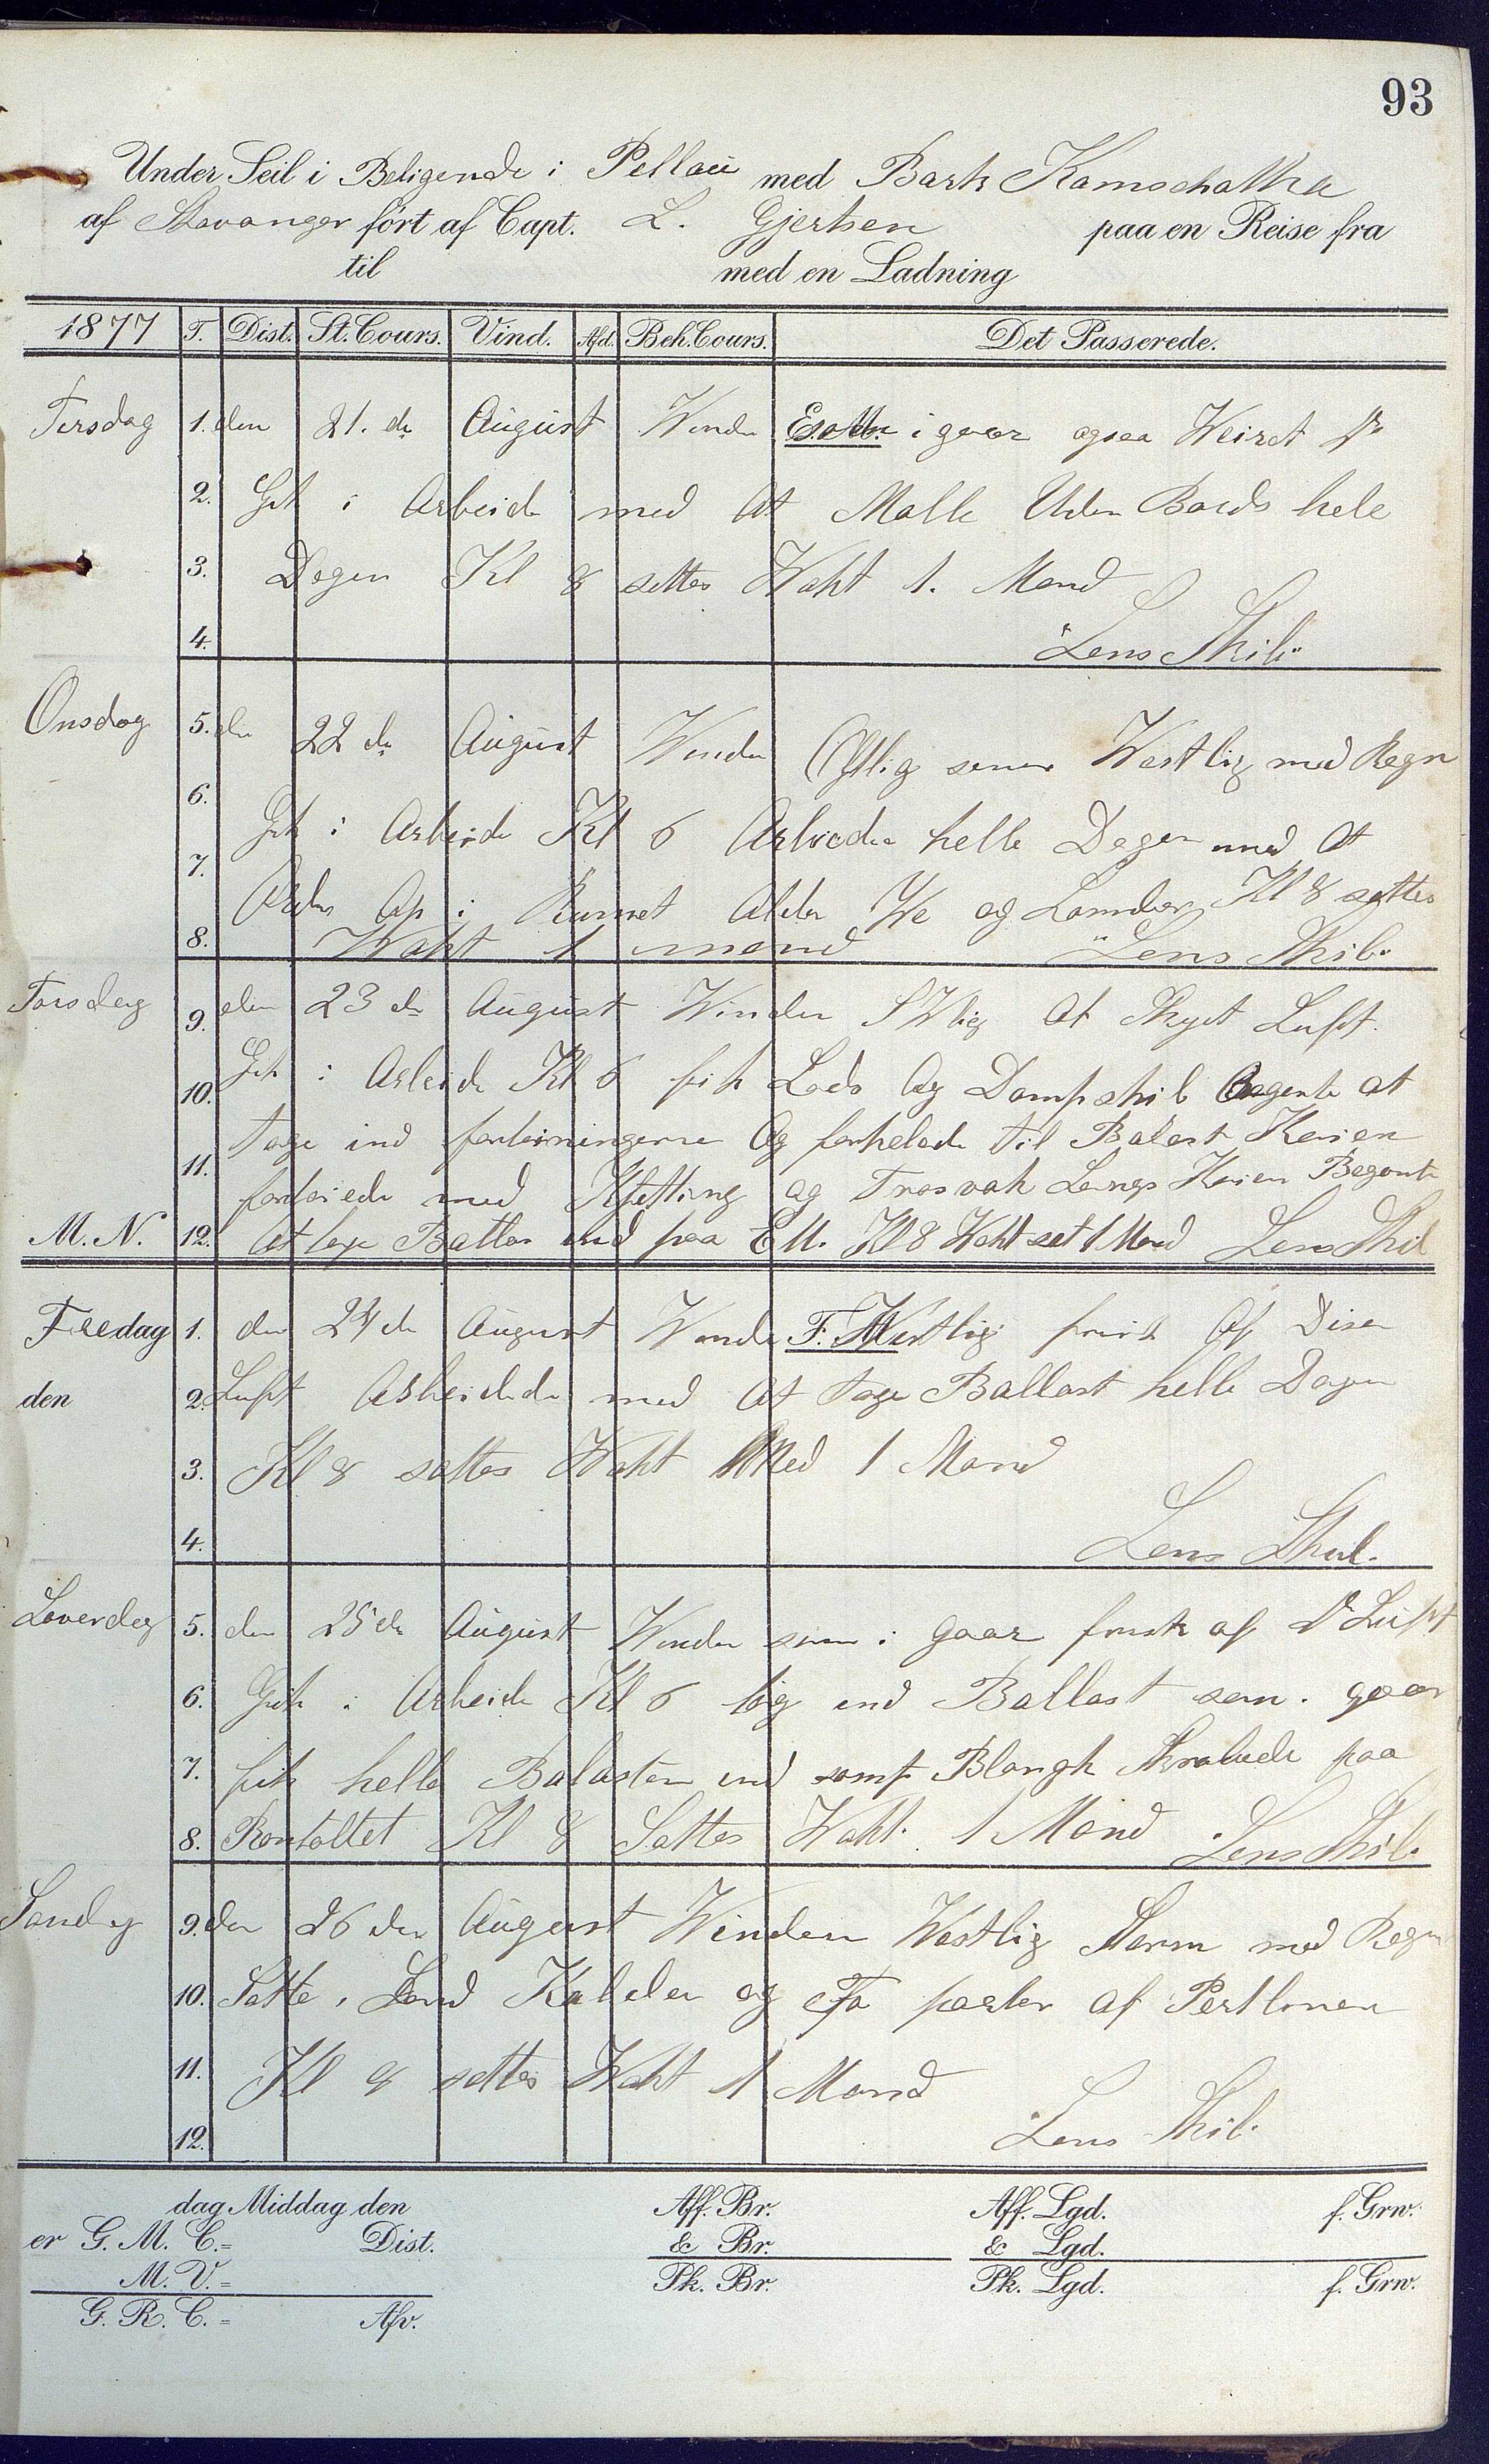 93
Under Seil i Beligende i Pellau med Bark Kamschatka
af Stavanger fört af Capt. L. Gjertsen paa en Reise fra
til med en Ladning
1877 T. Dist. St. Cours. Vind. Afd. Beh. Cours. Det Passerede.
Tirsdag 1. den 21. de August Vinden i gaar ogsaa Veiret
2. Gik i Arbeide med At Malle Uden Bords hele
3. Dagen Kl 8 settes Vakt 1. Mand
4. Lens Skib
Onsdag 5. den 22 de August Vinden Østlig sener Westlig med Regn
6. Gik i Arbeide Kl 6 Arbeide helle Dagen med At
7. Op i Rumet og Kl 8 settes
8. Wakt 1 mand Lens Skib
Torsdag 9. den 23 de August Winden SWlig At Skyet Luft.
10. Gik i Arbeide Kl 6 fik Lods Og Dampskib at
11. tage ind fortoiningerne Og forhelede til Balast Keien
fortoiede med Kjetting og Trosvak Langs Keien Begynte
M. N. 12. At tage Ballas ind paa EM. Kl 8 Wakt set 1 Mand Lens Skib
Freedag 1. den 24 de August Winden Westlig frisk Af Disen
den 2. Luft Arbeidede med At tage Ballast helle Dagen
3. Kl 8 settes Wakt Med 1 Mand
4. Lens Skib.
Loverdag 5. den 25 de August Winden som i gaar frisk af Do Luft
6. Gik i Arbeide Kl 6 tog ind Ballast som i gaar
7. fik helle Balasten ind samt Blangk Skrabede paa
8. Kl 8 Settes Wakt. 1 Mand Lens Skib.
Sondag 9. den 26 den August Winden Westlig Storm med Regn
10. Satte i Land og To parter af
11. Kl 8 settes Wakt 1 Mand
12. Lens Skib.
dag Middag den Aff. Br. Aff. Lgd. f. Grw.
er G. M. C.= Dist. & Br. & Lgd.
M. V.= Pk. Br. Pk. Lgd. f. Grw.
G. R. C.= Afv.